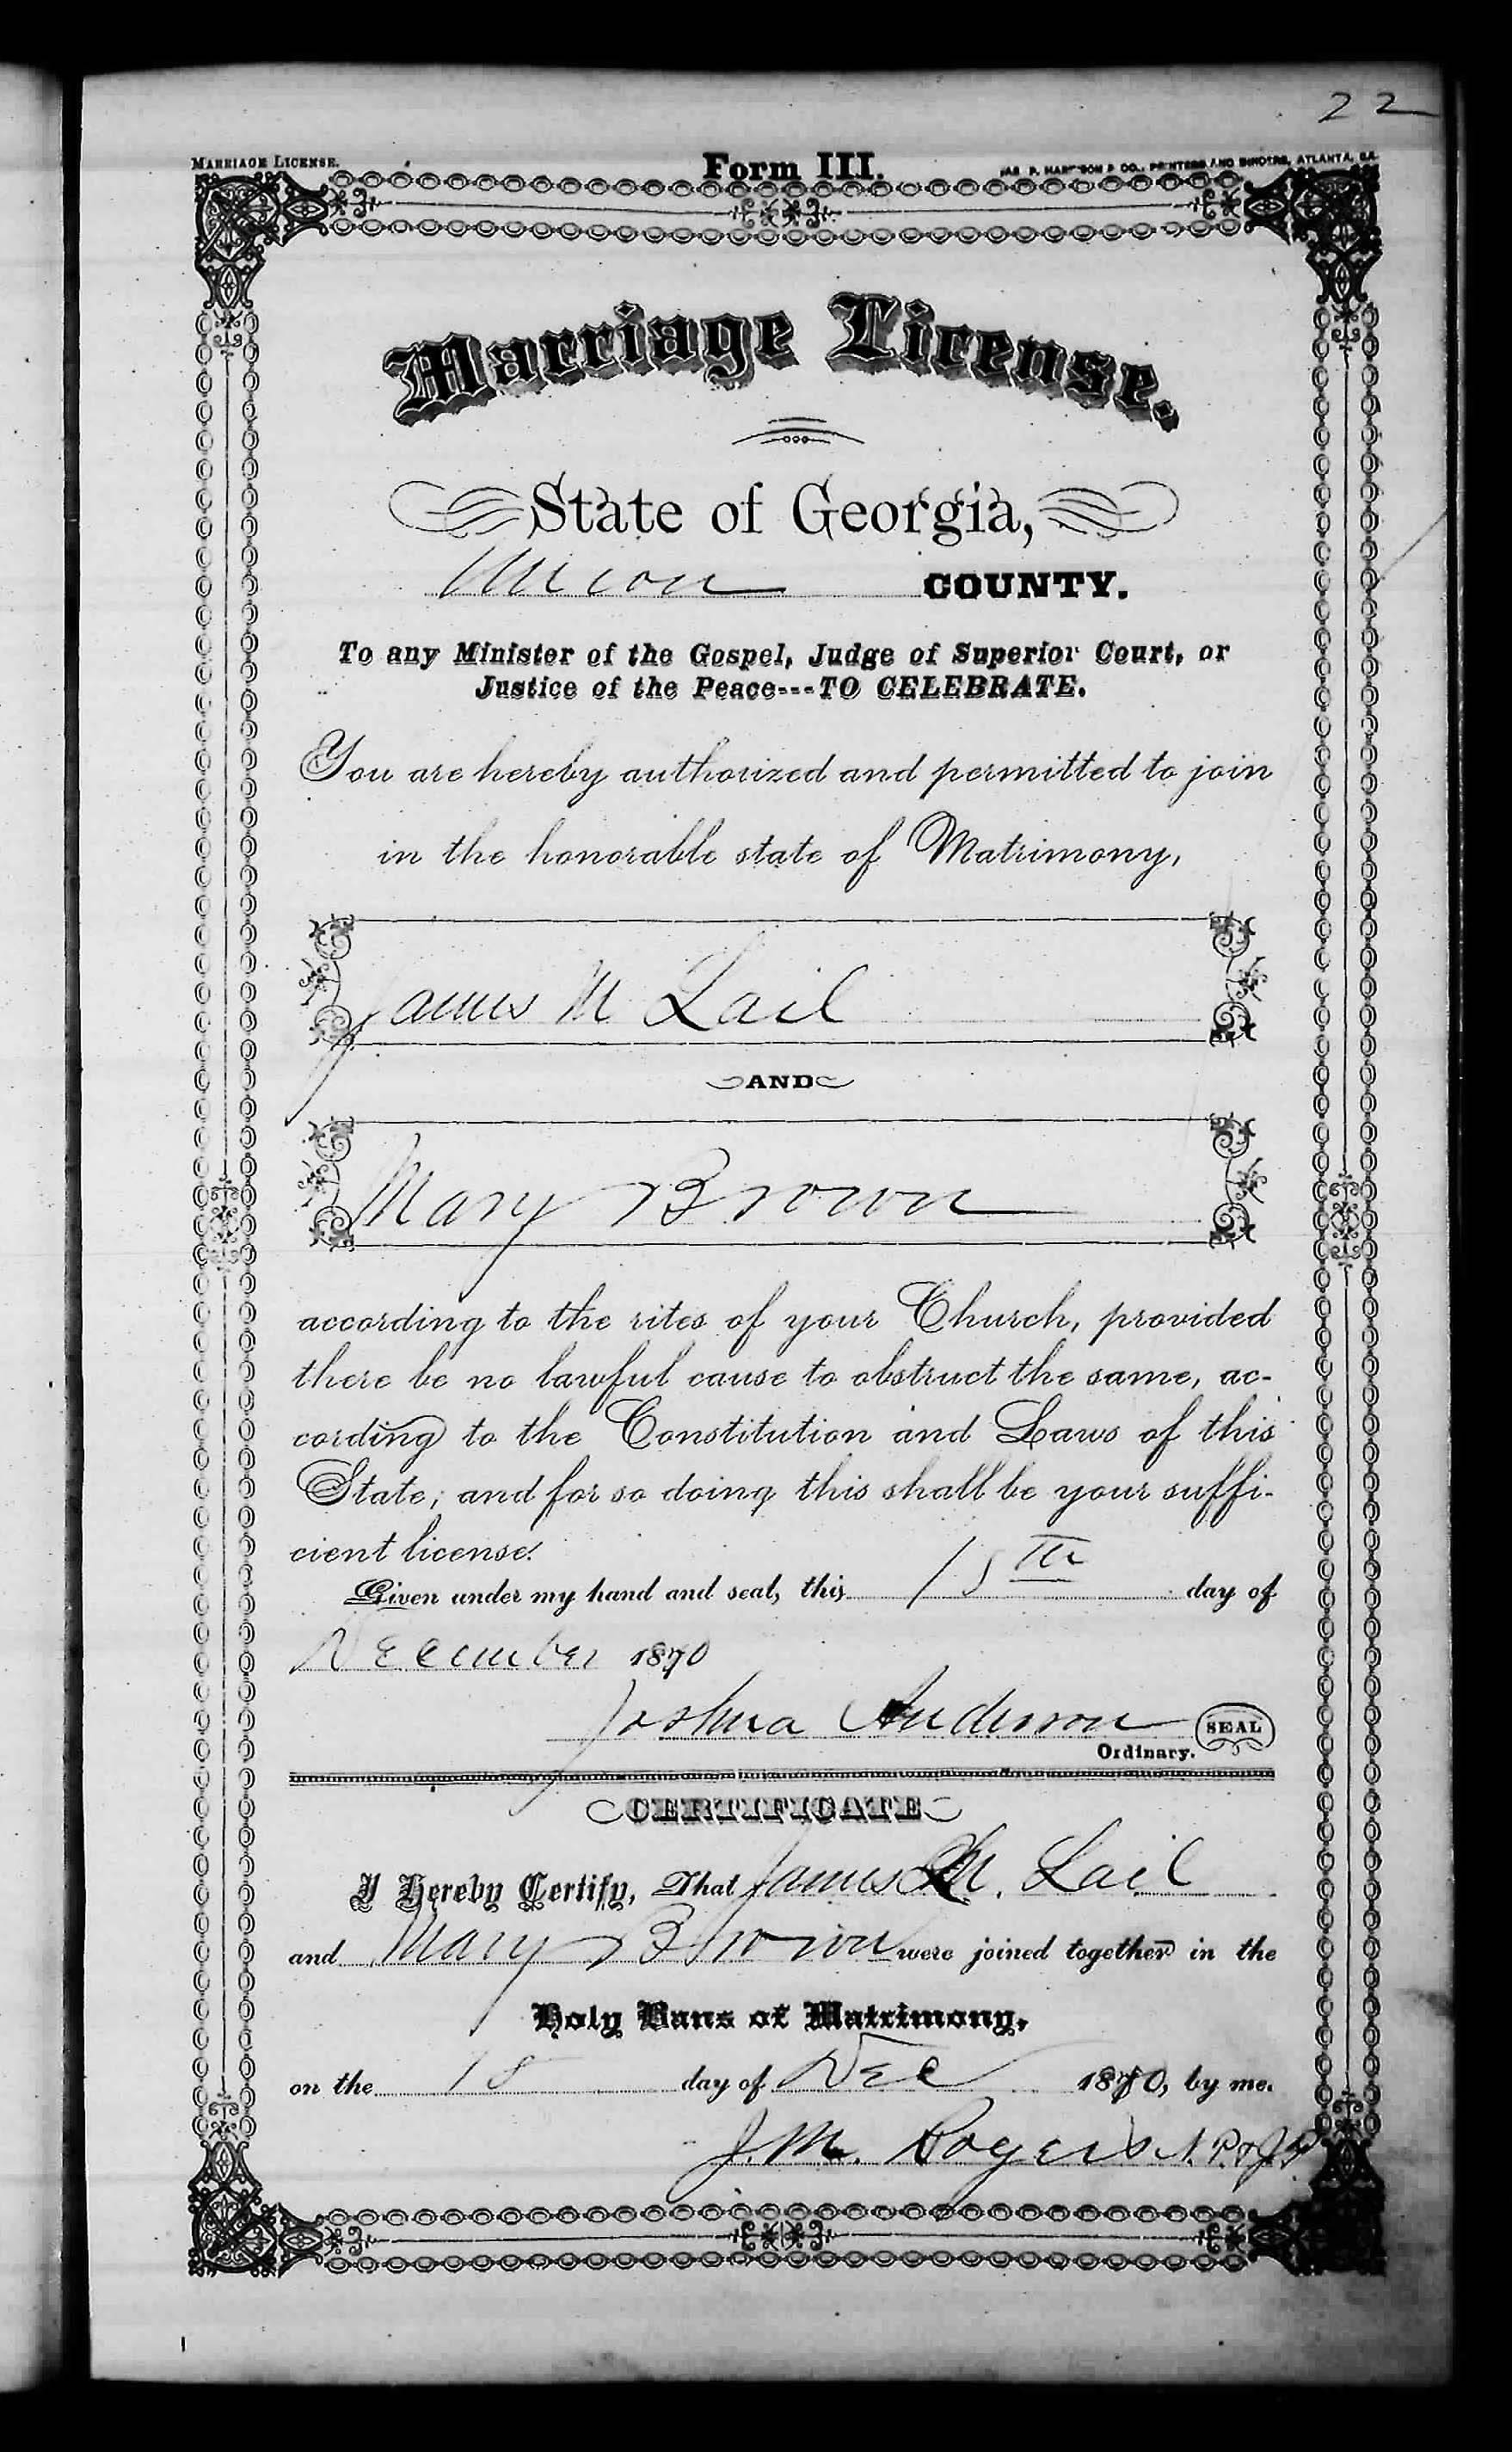 22
MARRIAGE LICENSE.
Form III.
JAS. P. HARRISON & CO., PRINTERS AND BINDERS, ATLANTA, GA.
Marriage License.
State of Georgia,
Union COUNTY.
To any Minister of the Gospel, Judge of Superior Court, or
Justice of the Peace---TO CELEBRATE.
You are hereby authorized and permitted to join
in the honorable state of Matrimony,
James M Lail
AND
Mary Brown
according to the rites of your Church, provided
there be no lawful cause to obstruct the same, ac-
cording to the Constitution and Laws of this
State; and for so doing this shall be your suffi-
cient license.
Given under my hand and seal, this 15th day of
December 1870
Joshua Anderson SEAL
Ordinary.
CERTIFICATE
I Hereby Certify, That James M. Lail
and Mary Brown were joined together in the
Holy Bans of Matrimony.
on the day of Dec 1870, by me.
J. M. Rogers N. P. & J. P.